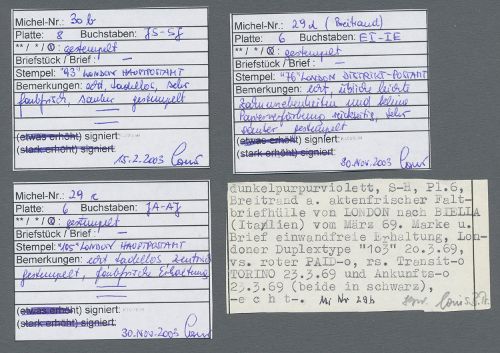 Michel-Nr.: 30 b
Platte: 8 Buchstaben: JS-SJ
** / * / ⊙ : gestempelt
Briefstück / Brief: -
Stempel: "43" LONDON HAUPTPOSTAMT
Bemerkungen: echt, tadellos, sehr
farbfrisch, sauber gestempelt
(etwas erhöht) signiert:
(stark erhöht) signiert:
15.2.2003
Michel-Nr.: 29 d (Breitrand)
Platte: 6 Buchstaben: EI-IE
** / * / ⊙ : gestempelt
Briefstück / Brief: -
Stempel: "76" LONDON DISTRIKT-POSTAMT
Bemerkungen: echt, übliche leichte
Zahnunebenheiten und kleine
Papierverfärbung rückseitig, sehr
sauber gestempelt
(etwas erhöht) signiert:
(stark erhöht) signiert:
30.NOV.2003
Michel-Nr.: 29
Platte: 6 Buchstaben: JA-AJ
** / * / ⊙ : gestempelt
Briefstück / Brief: -
Stempel: "105" LONDON HAUPTPOSTAMT
Bemerkungen: echt tadellos zentrisch
gestempelt, farbfrische Erhaltung
(etwas erhöht) signiert:
(stark erhöht) signiert:
30.NOV.2003
dunkelpurpurviolett, S-H, Pl.6,
Breitrand a. aktenfrischer Falt-
briefhülle von LONDON nach BIELLA
(Italien) vom März 69. Marke u.
Brief einwandfreie Erhaltung, Lon-
doner Duplextype "103" 20.3.69,
vs. roter PAID-o, rs. Transit-o
TORINO 23.3.69 und Ankunfts-o
23.3.69 (beide in schwarz),
-echt-. Mi Nr 29b